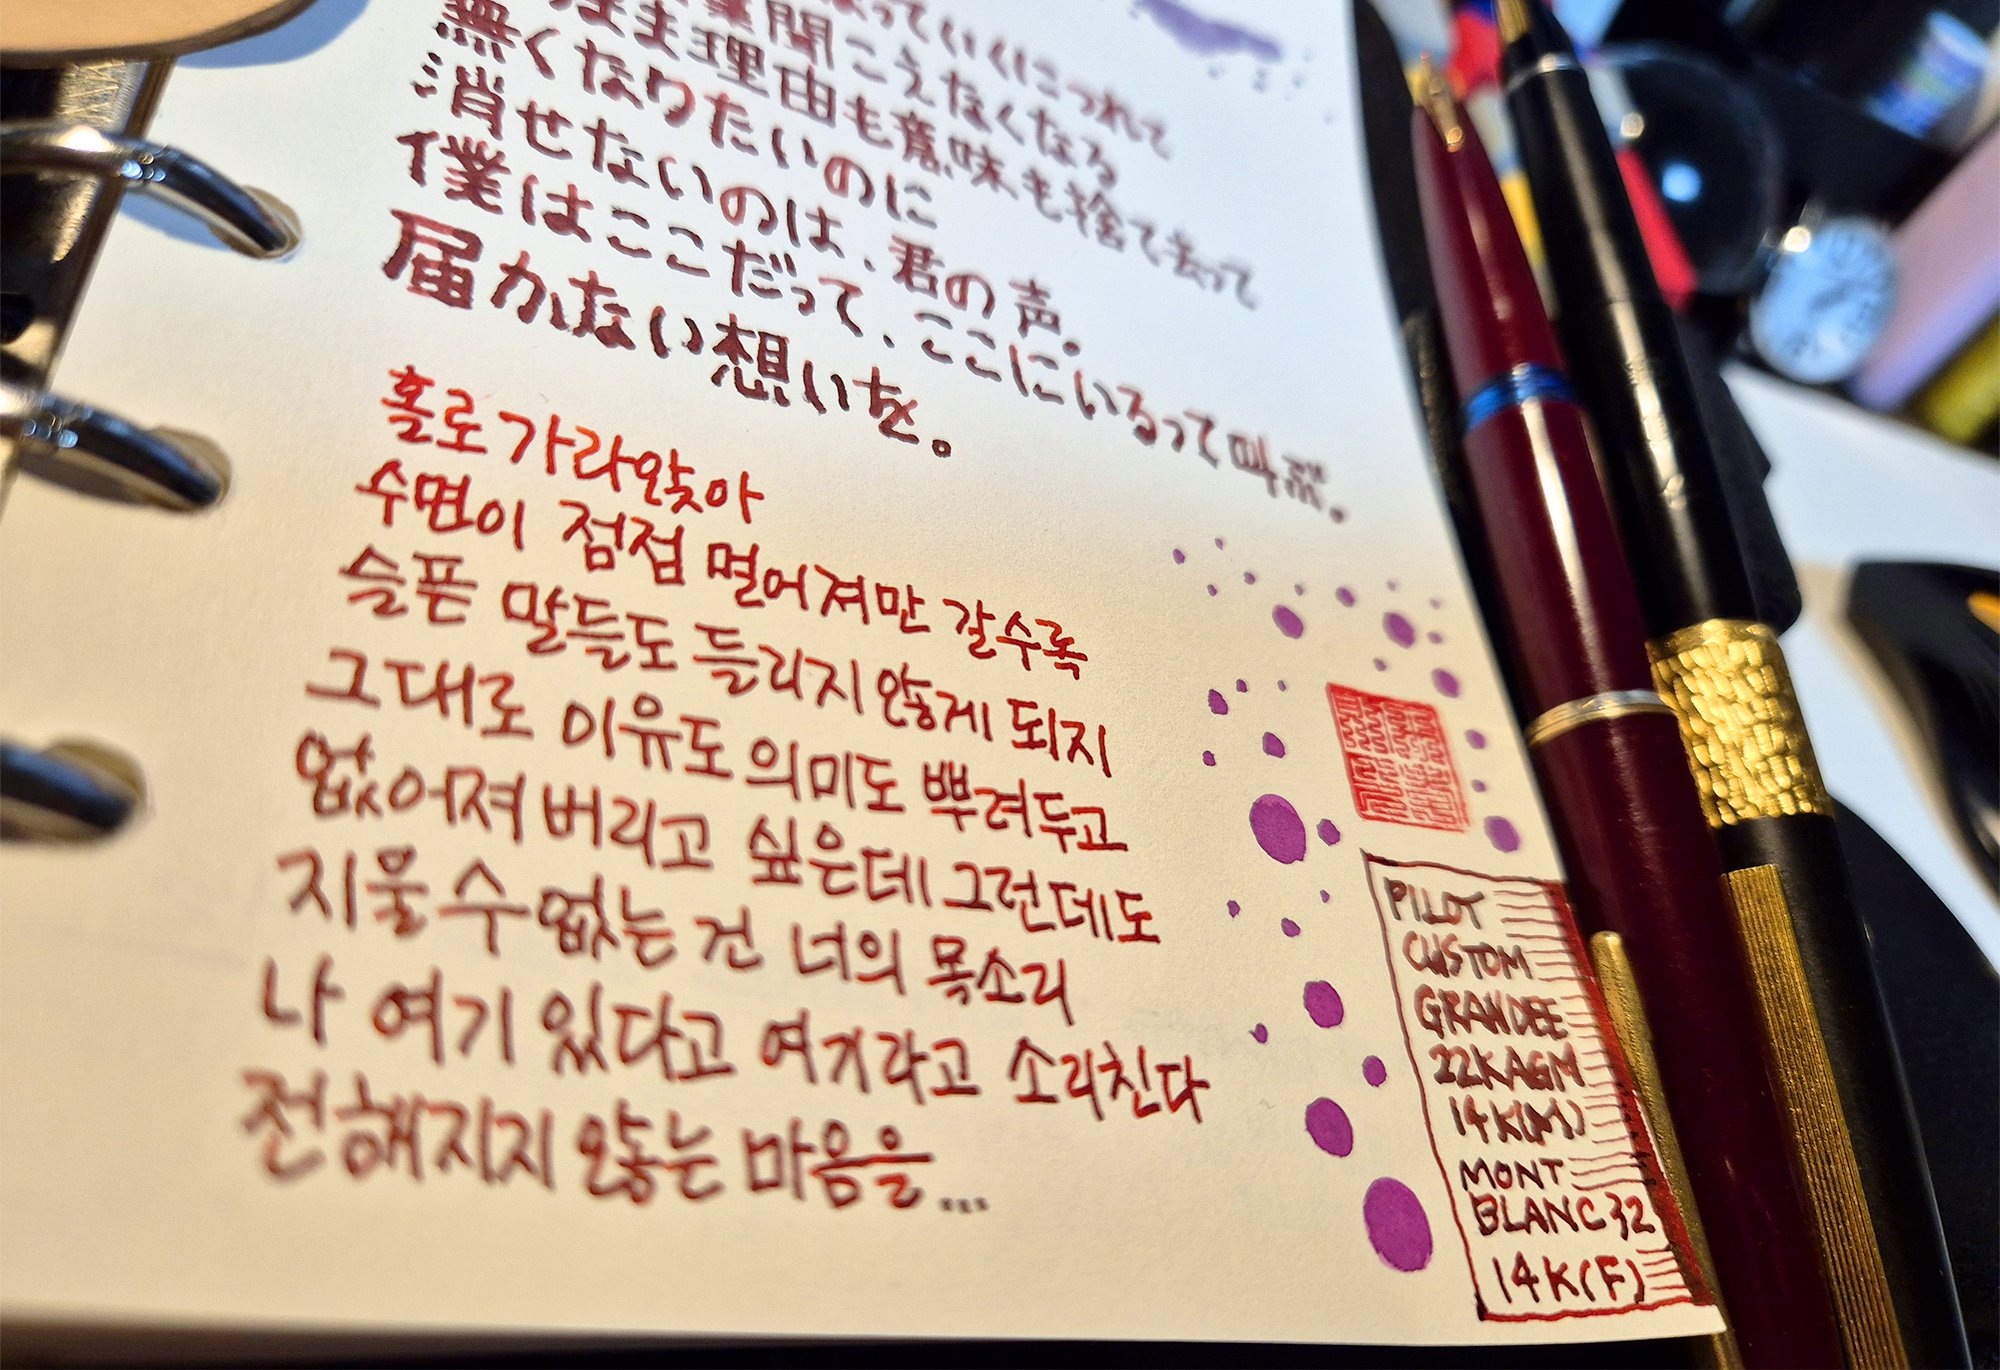 っていくにつれて
葉聞こえなくなる
まま理由も意味も捨て去って
無くなりたいのに
消せないのは、君の声。
僕はここだって、ここにいるって叫ぶ。
届かない想いを。
홀로 가라앉아
수면이 점점 멀어져만 갈수록
슬픈 말들도 들리지 않게 되지
그대로 이유도 의미도 뿌려두고
없어져 버리고 싶은데 그런데도
지울 수 없는 건 너의 목소리
나 여기 있다고 여기라고 소리친다
전해지지 않는 마음을...
PILOT
CUSTOM
GRANDEE
22KAGM
14K(M)
MONT
BLANC 32
14K(F)